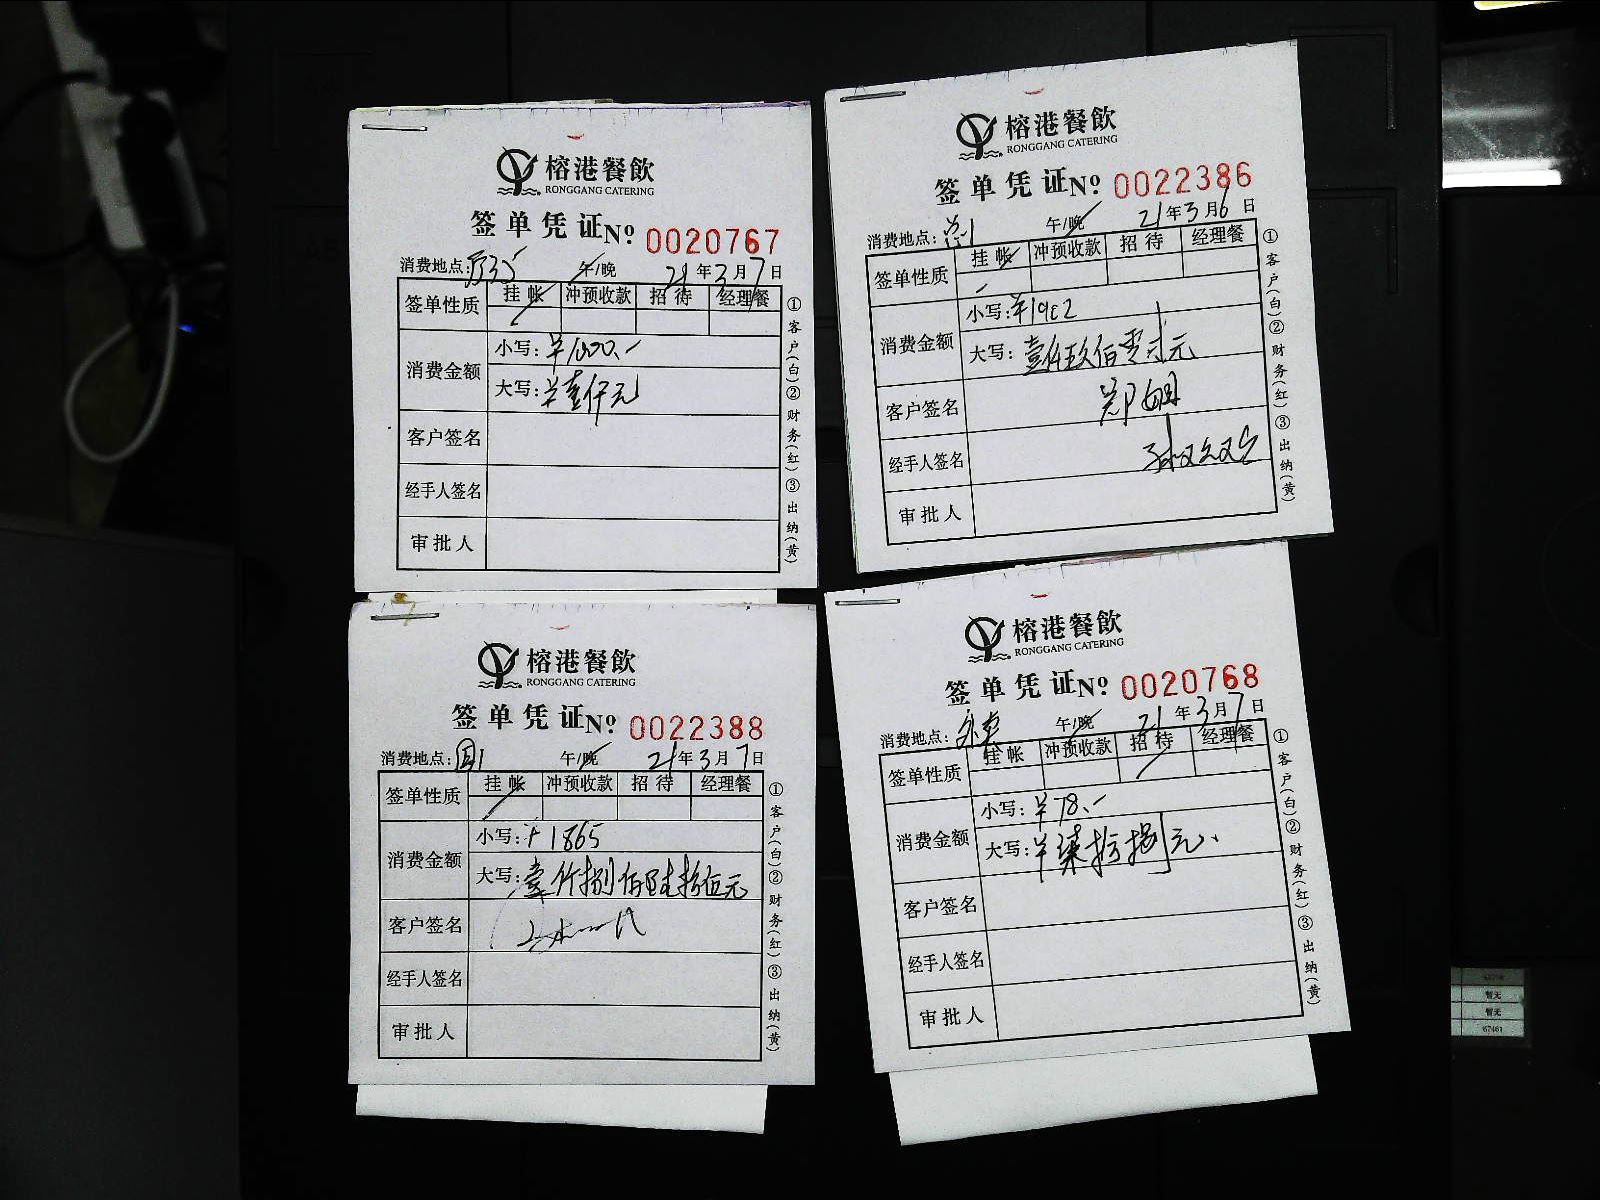 榕港餐飲
RONGGANG CATERING
签单凭证 Nº 0020767
消费地点: 午/晚 21年3月7日
签单性质 挂帐 冲预收款 招待 经理餐
消费金额 小写:¥1000.-
大写:¥壹仟元
客户签名
经手人签名
审批人
①客户(白)②财务(红)③出纳(黄)
榕港餐飲
RONGGANG CATERING
签单凭证 Nº 0022386
消费地点: 午/晚 21年3月6日
签单性质 挂帐 冲预收款 招待 经理餐
消费金额 小写:¥1902
大写:壹仟玖佰零贰元
客户签名 郑
经手人签名
审批人
①客户(白)②财务(红)③出纳(黄)
榕港餐飲
RONGGANG CATERING
签单凭证 Nº 0022388
消费地点: 午/晚 21年3月7日
签单性质 挂帐 冲预收款 招待 经理餐
消费金额 小写:¥1865
大写:壹仟捌佰陆拾伍元
客户签名
经手人签名
审批人
①客户(白)②财务(红)③出纳(黄)
榕港餐飲
RONGGANG CATERING
签单凭证 Nº 0020768
消费地点:外卖 午/晚 21年3月7日
签单性质 挂帐 冲预收款 招待 经理餐
消费金额 小写:¥78.-
大写:¥柒拾捌元.
客户签名
经手人签名
审批人
①客户(白)②财务(红)③出纳(黄)
暂无
暂无
67461